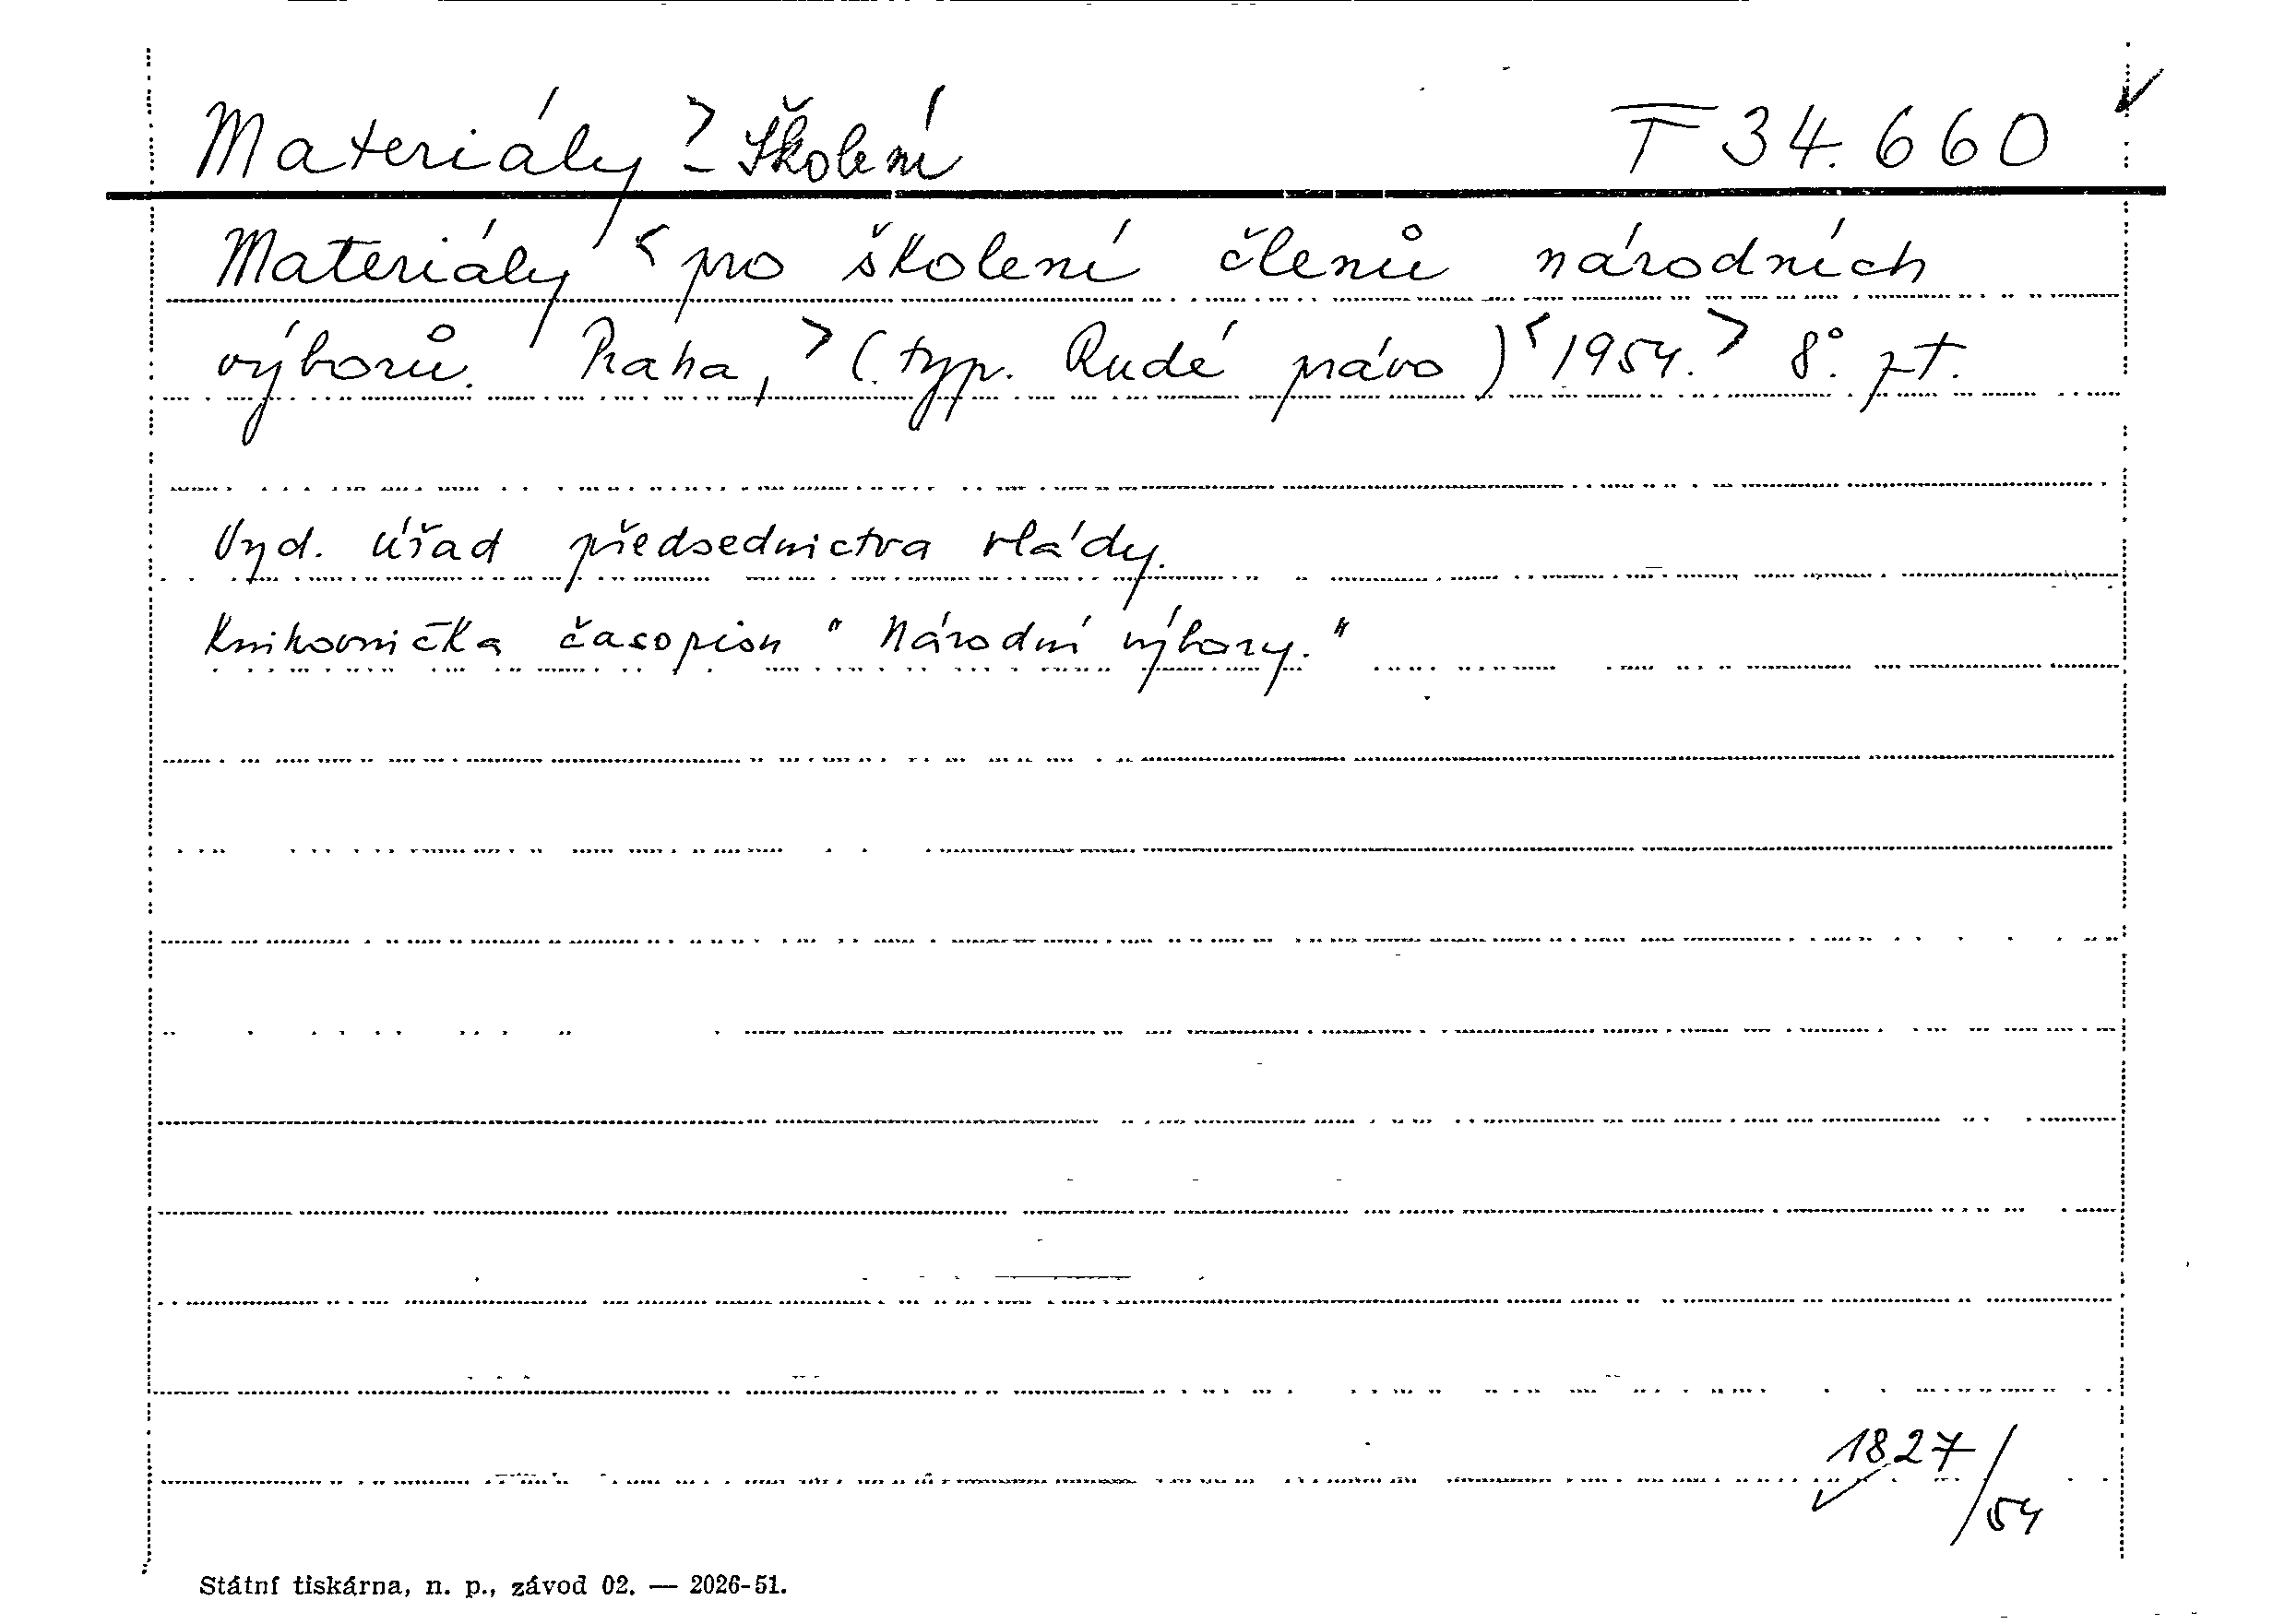 Materiály > - školení T 34.660
Materiály < pro školení členů národních
výborů. Praha, > (typ. Rudé právo) < 1954. > 8°.
Vyd. úřad předsednictva vlády.
Knihovnička časopisu "Národní výbory."
1827/54
Státní tiskárna, n. p., závod 02. — 2026-51.